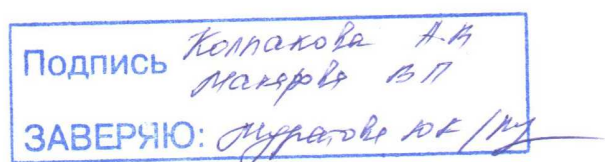 Подпись Колпакова А.В
Макарова В П
ЗАВЕРЯЮ: Муратова ЮК